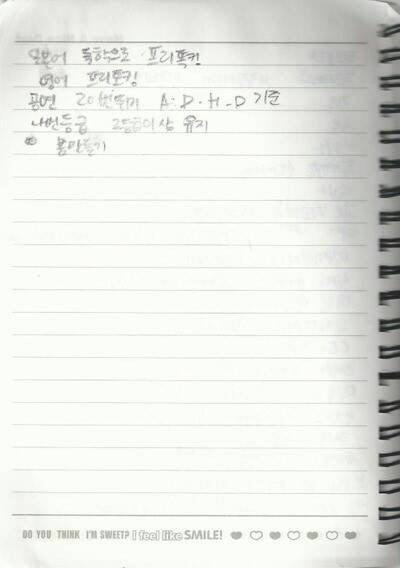 일본어 독학으로 프리톡킹
영어 프리토킹
공연 20번뛰기 A·D·H-D 기준
내번등급 2등급이상 유지
몸만들기
DO YOU THINK I'M SWEET? I feel like SMILE!